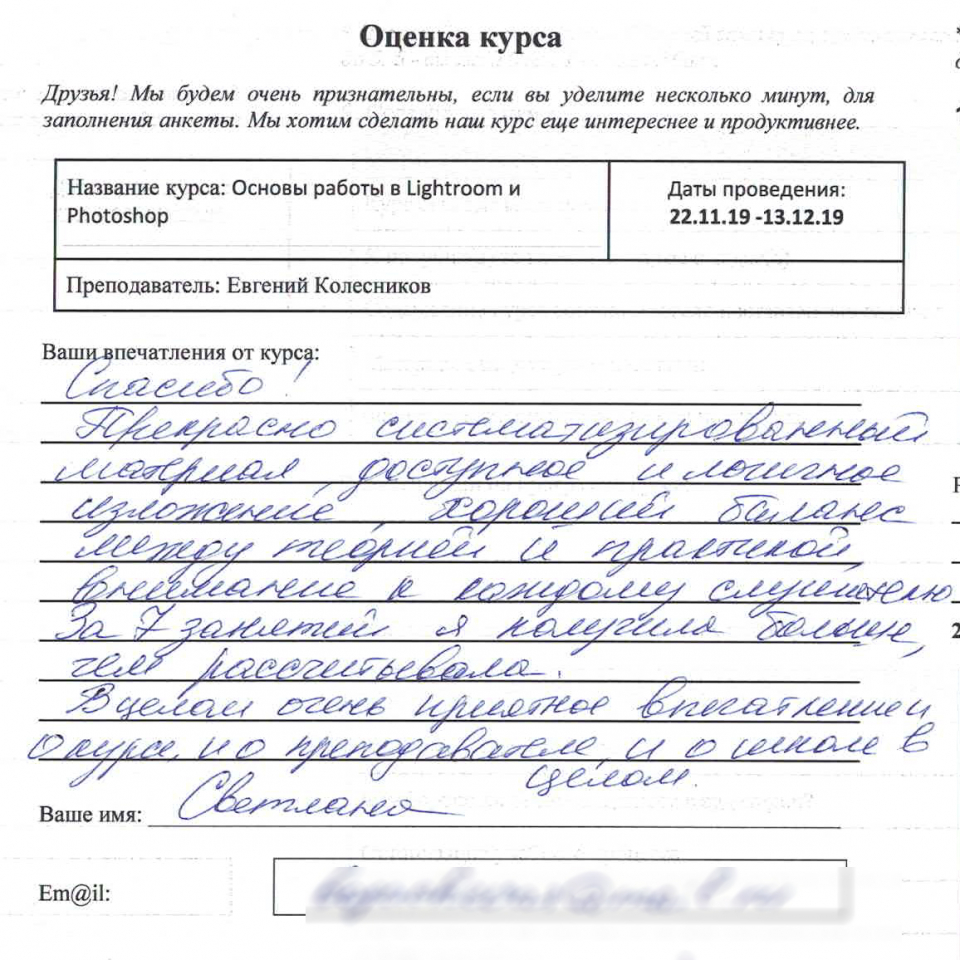 Оценка курса
Друзья! Мы будем очень признательны, если вы уделите несколько минут, для
заполнения анкеты. Мы хотим сделать наш курс еще интереснее и продуктивнее.
Название курса: Основы работы в Lightroom и
Photoshop
Даты проведения:
22.11.19 -13.12.19
Преподаватель: Евгений Колесников
Ваши впечатления от курса:
Спасибо!
Прекрасно систематизированный
материал, доступное и логичное
изложение, хороший баланс
между теорией и практикой,
внимание к каждому слушателю
За 7 занятий я получила больше,
чем рассчитывала.
В целом очень приятное впечатление и
о курсе, и о преподавателе, и о школе в
целом.
Ваше имя: Светлана
Em@il: